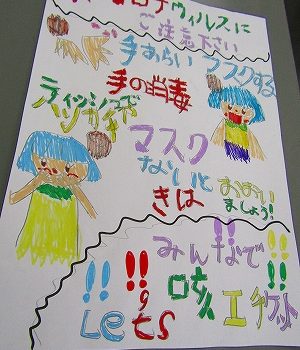 ロナウィルスに
ご注意下さい
手あらい マスクする
手の消毒
ティッシュで
マスク
ないと
きは
おおい
ましょう!
みんなで
!! !! 咳 エチケット !!
Let's